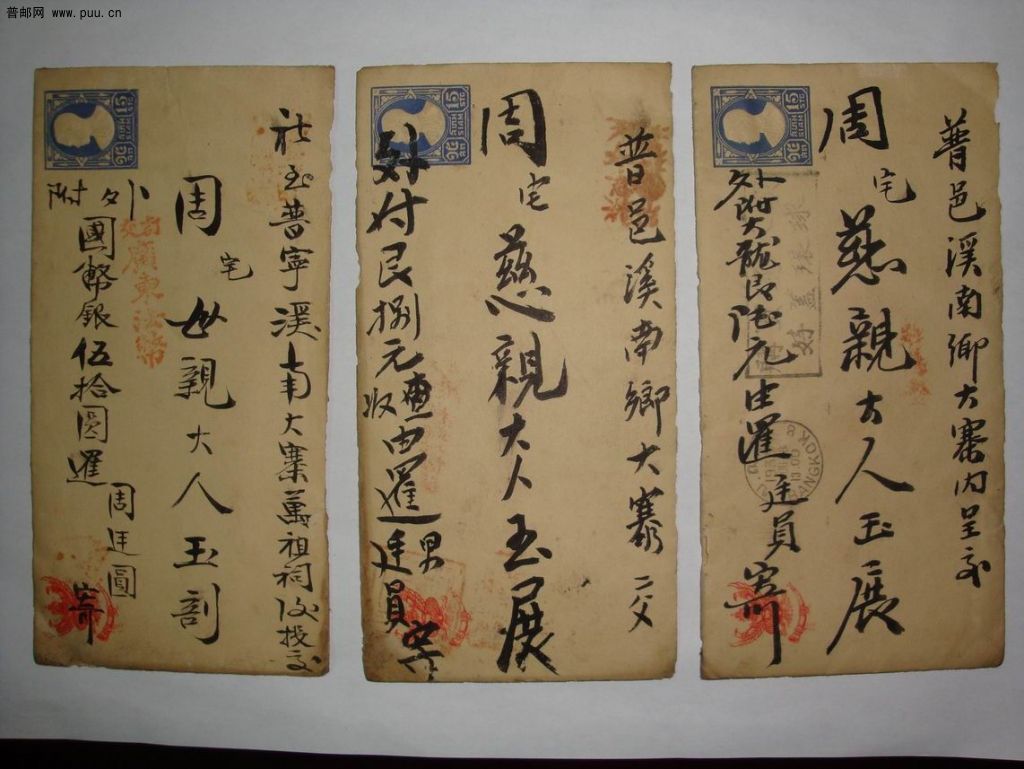 普邮网 www.puu.cn
普邑溪南鄉大寨内呈交
周宅慈親大人玉展
外附大龍艮陸元由暹 廷員寄
15
SIAM
BANGKOK
普邑溪南鄉大寨交
周宅慈親大人玉展
外付艮捌元查收由暹男廷員寄
15
SIAM
社至普寧溪南大寨萬祖祠後投交
周宅母親大人玉剖
外附
國幣銀伍拾圓暹
周廷圓寄
廣東法幣
15
SIAM